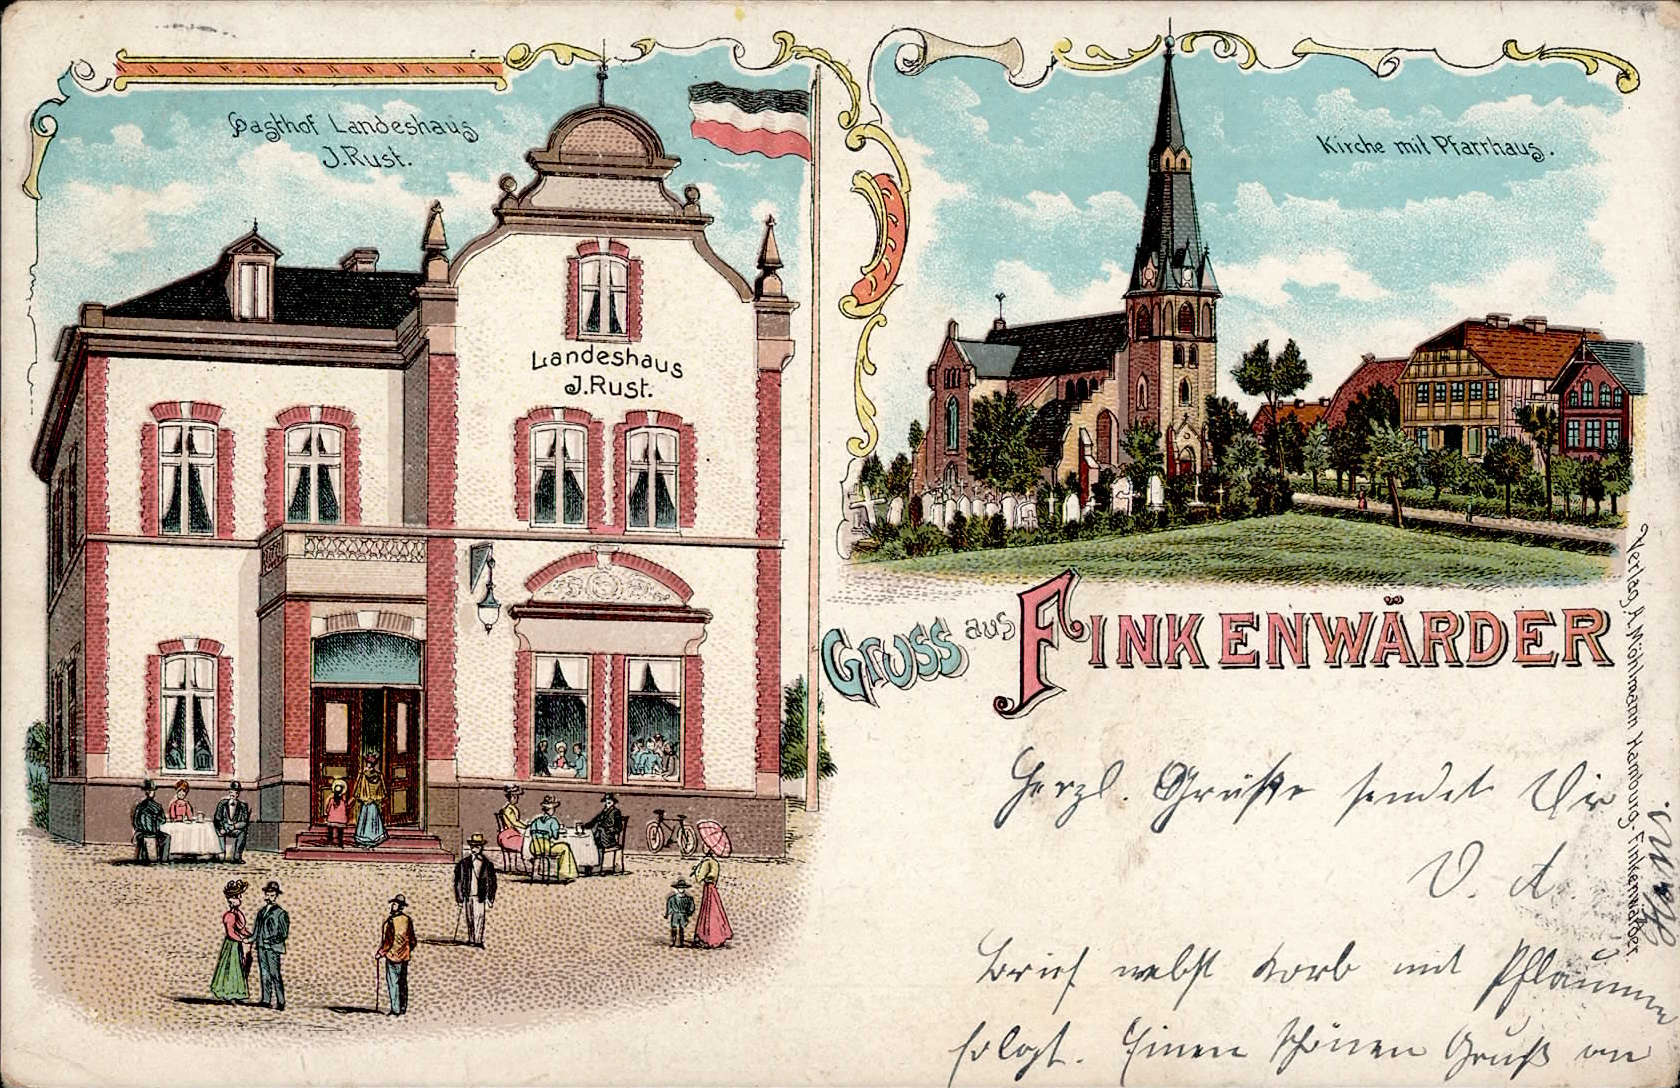 Gasthof Landeshaus
J. Rust.
Landeshaus
J. Rust.
Kirche mit Pfarrhaus.
Gruss aus FINKENWÄRDER
Verlag A. Möhlmann Hamburg-Finkenwärder
Herzl. Grüße sendet Dir
D. A.
Brief nebst Korb mit Pflaumen
folgt. Einen schönen Gruß an